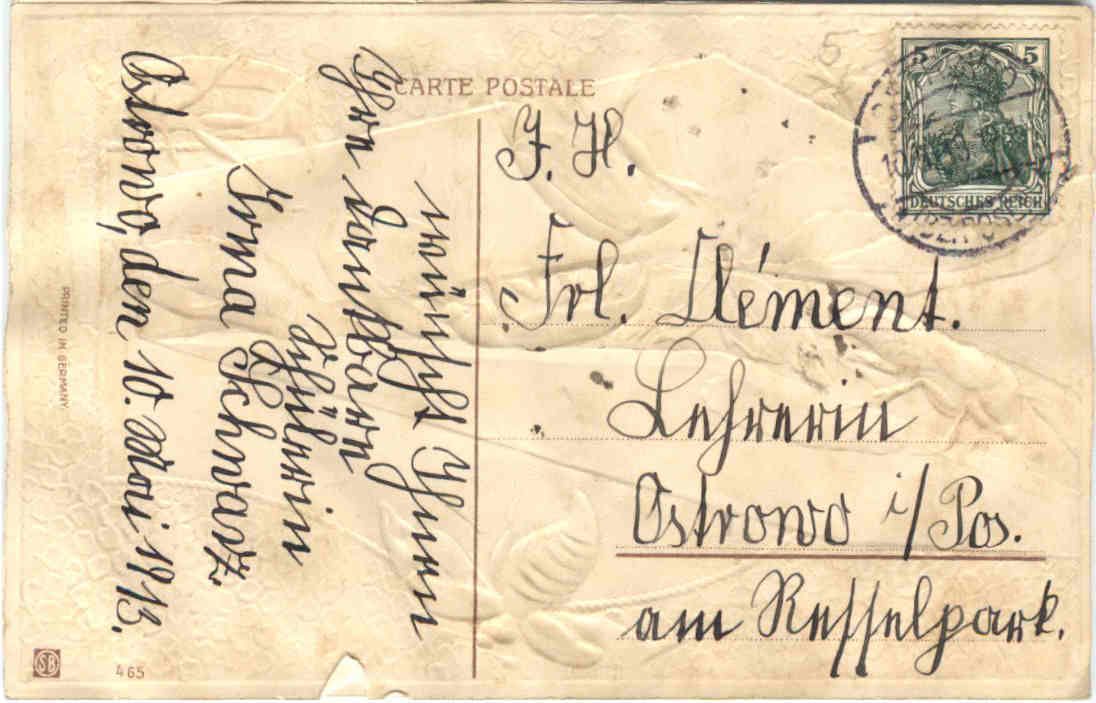 CARTE POSTALE
wünscht Ihnen
Ihre dankbare
Schülerin
Irma Schwarz.
Ostrowo, den 10. Mai 1913.
5 5
DEUTSCHES REICH
J. H.
Frl. Clément.
Lehrerin
Ostrowo i/Pos.
am Resselpark.
5
PRINTED IN GERMANY
SB
465